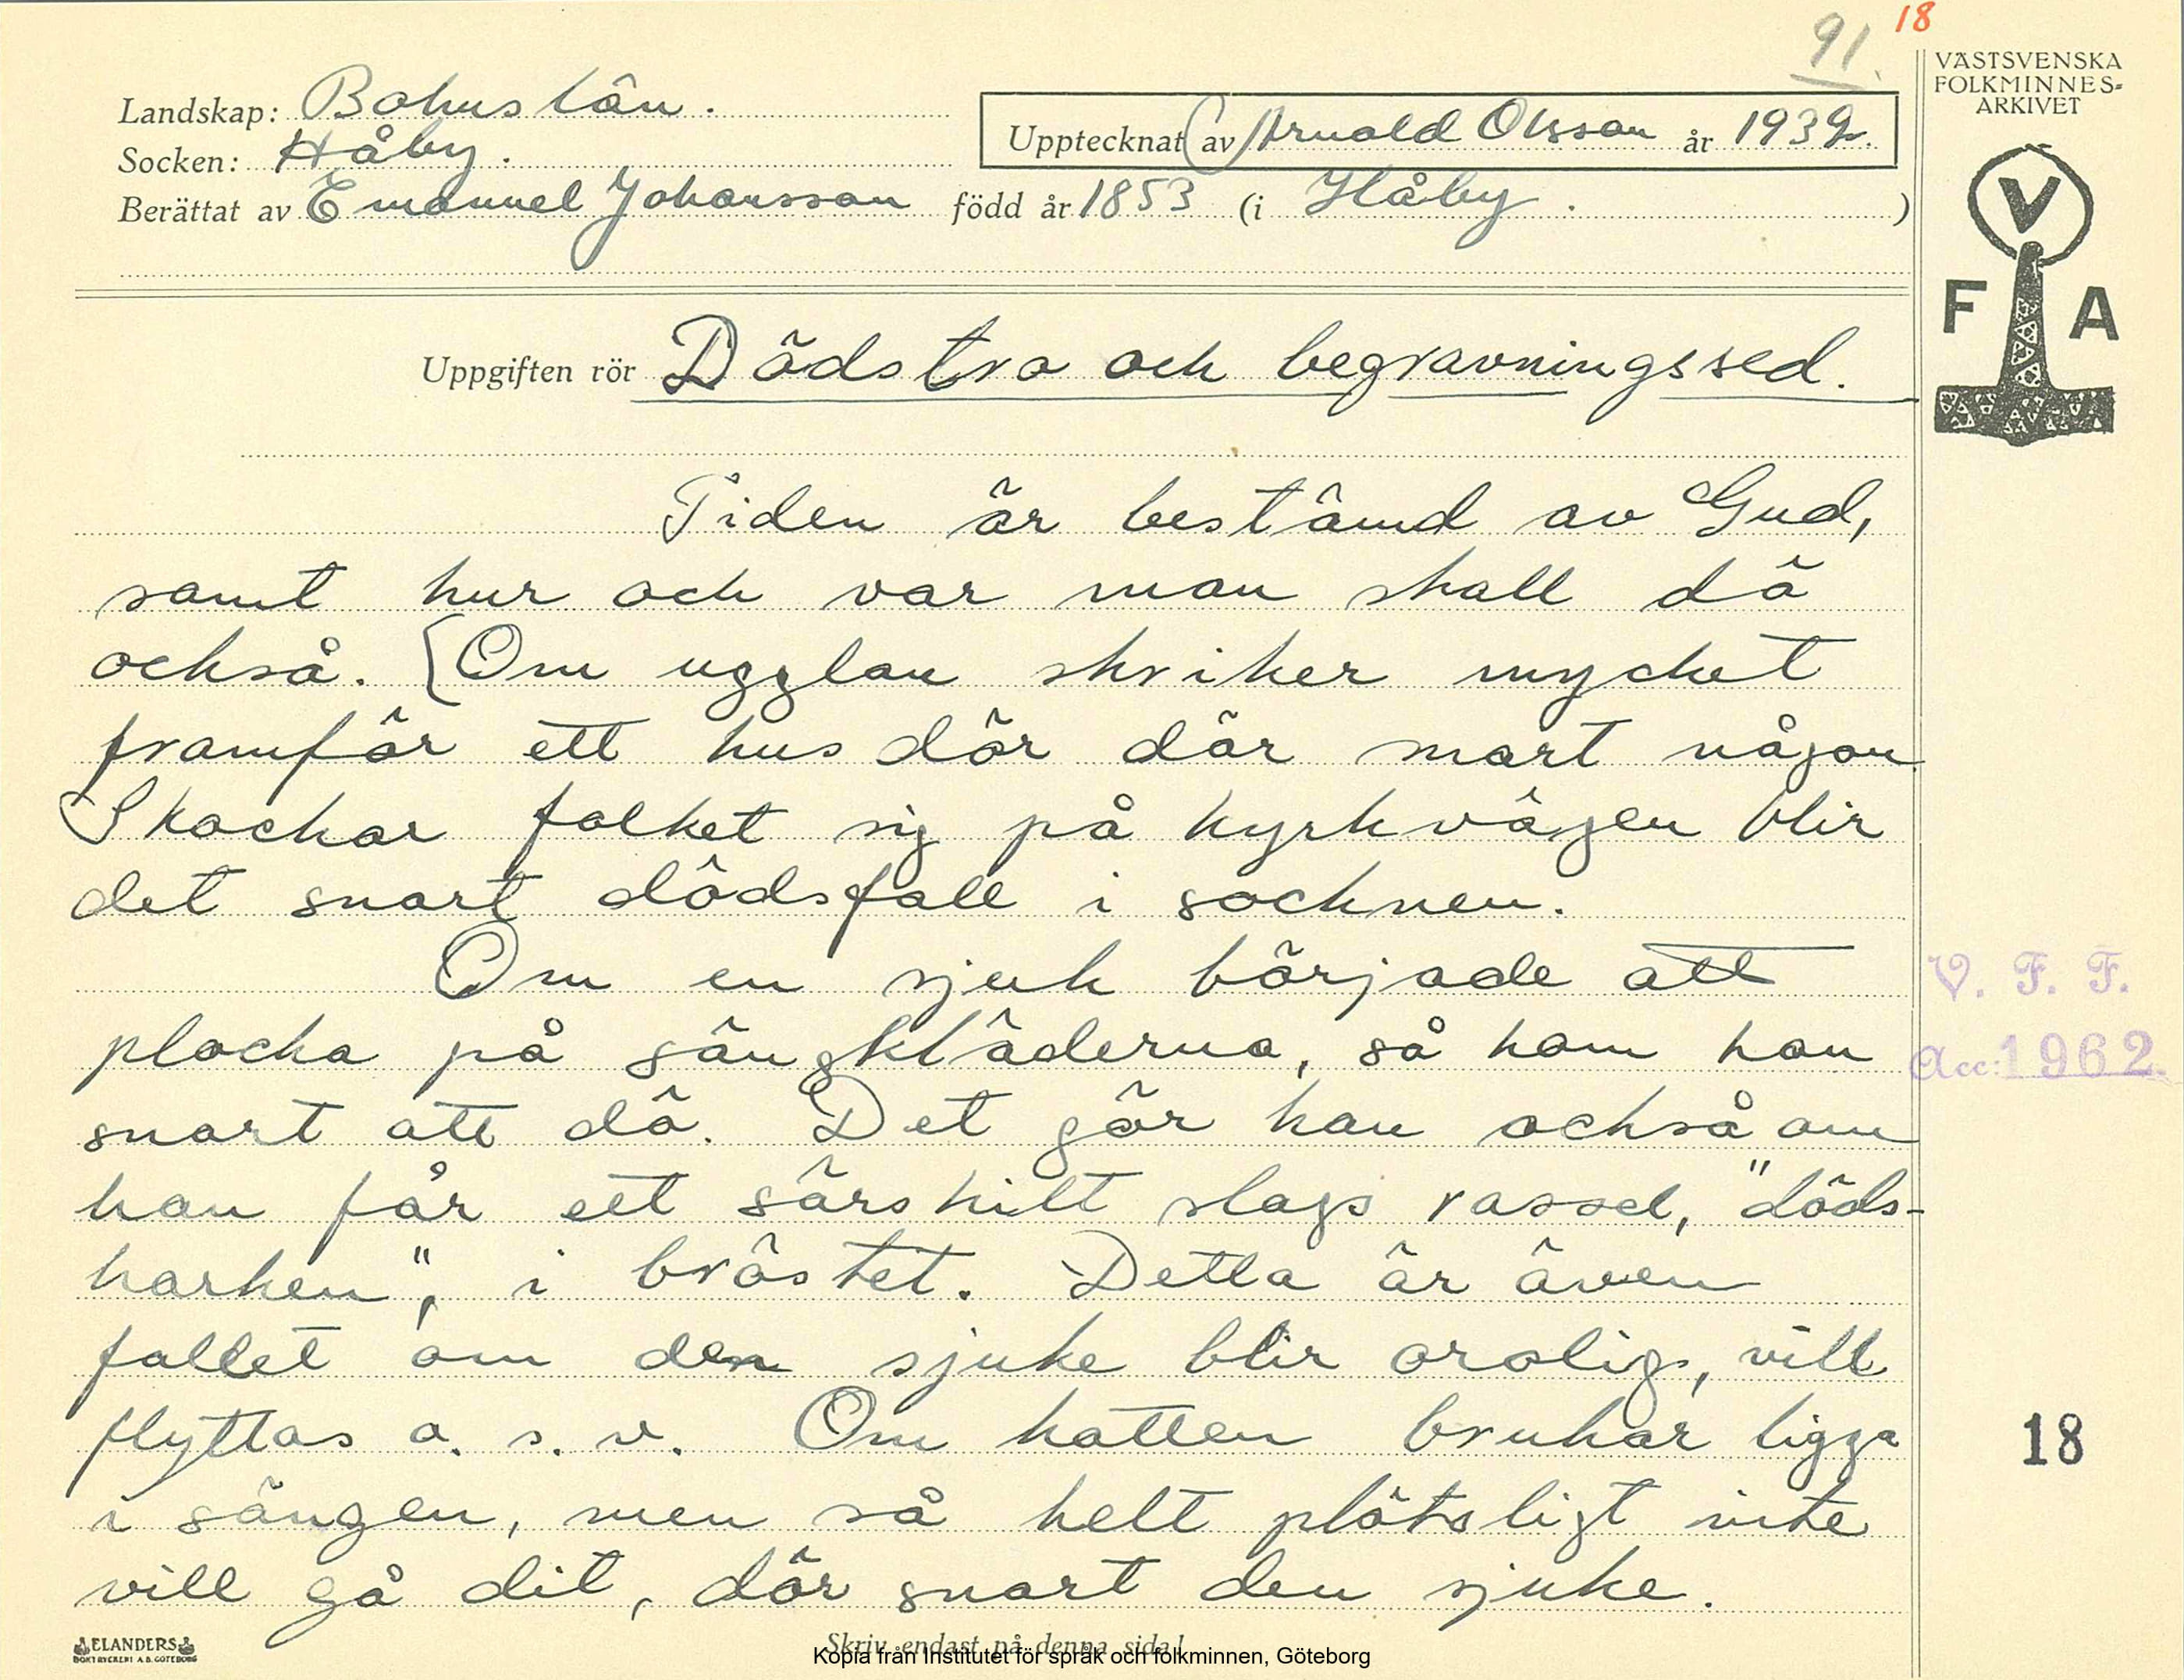 91.
18
VÄSTSVENSKA
FOLKMINNES-
ARKIVET
Landskap: Bohuslän.
Upptecknat (av) Arnold Olsson år 1932.
Socken: Håby.
Berättat av Emanuel Johansson född år 1853 (i Håby. )
V
F A
Uppgiften rör Dödstro och begravningssed.
Tiden är bestämd av Gud,
samt hur och var man skall dö
också. [Om ugglan skriker mycket
framför ett hus dör där snart någon
Skockar folket sig på kyrkvägen blir
det snart dödsfall i socknen.
Om en sjuk började att
plocka på sängkläderna, så kom han
snart att dö. Det gör han också om
han får ett särskilt slags rassel, "döds-
harken", i bröstet. Detta är även
fallet om den sjuke blir orolig, vill
flyttas o. s. v. Om katten brukar ligga
i sängen, men så helt plötsligt inte
vill gå dit, dör snart den sjuke.
V. F. F.
Acc: 1962.
18
ELANDERS
BOKTRYCKERI A.B. GÖTEBORG
Skriv endast på denna sida!
Kopia från Institutet för språk och folkminnen, Göteborg